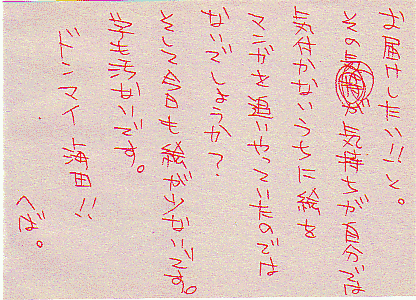 お届けしたい!!と。
その気持ちが自分では
気付かないうちに絵を
マンガを追いやっていたのでは
ないでしょうか?
そして今日も絵が少ないです。
字も汚ないです。
ドンマイ上海田!!
くば。